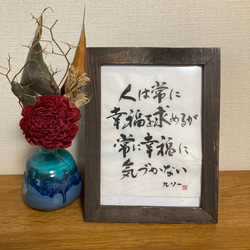 人は常に
幸福を求めるが
常に幸福に
気づかない
ルソー